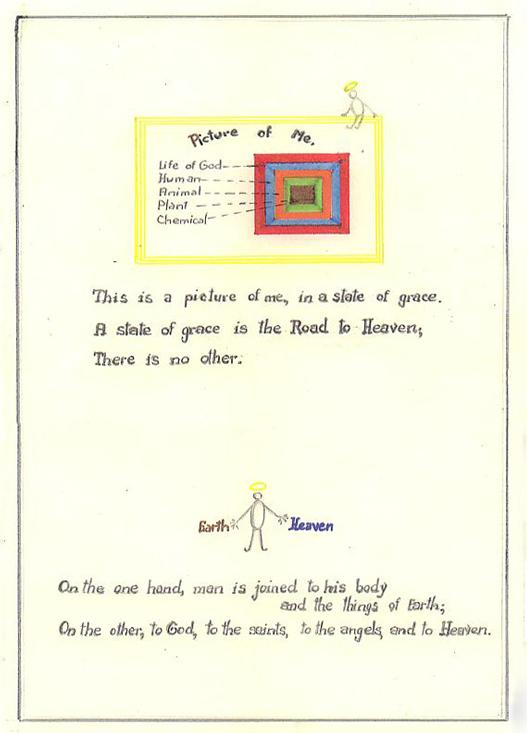 Picture of Me.
Life of God
Human
Animal
Plant
Chemical
This is a picture of me, in a state of grace.
A state of grace is the Road to Heaven;
There is no other.
Earth Heaven
On the one hand, man is joined to his body
and the things of Earth;
On the other, to God, to the saints, to the angels, and to Heaven.